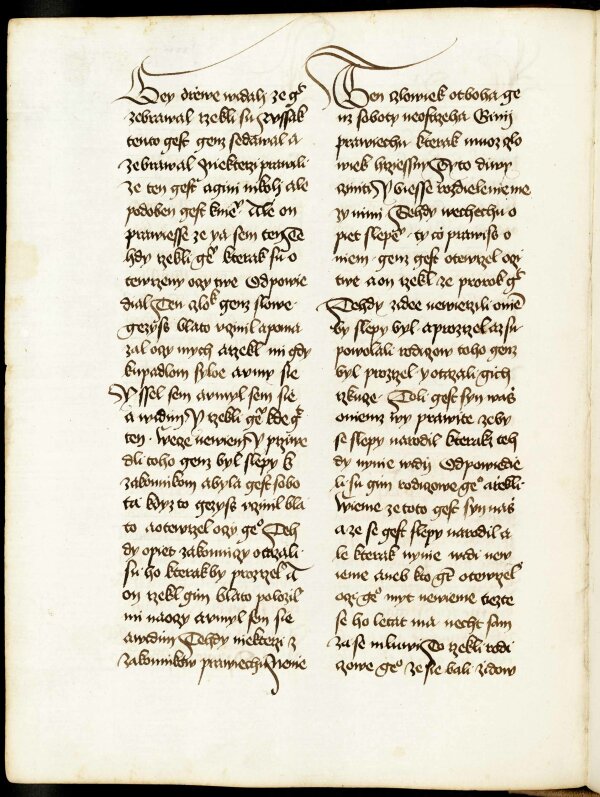 gey drewe widali ze gt
zebrawal rzekli su zyssak
tento gest genz sedawal a
zebrawal Niekterzi prawili
ze ten gest a gini nikoli ale
podoben gest kniemu Ale on
prawiesse ze ya sem ten Te
hdy rzekli gt kterak su o
tewrzeny oczy twe Odpowie
dial Ten czlok genz slowe
gezyss blato vczinil a poma
zal oczy mych a rzekl mi gdy
k nypadlom syloe a vmy sie
Y ssel sem a vmyl sem sie
a widim Y rzekli ge kde gt
ten Wece newiem Y prziwe
dli toho genz byl slepy k
zakonnikom a byla gest sobo
ta kdyz to gezyss vczinil bla
to a otewrzel oczy geo Teh
dy opiet zakonniczy otazali
su ho kterak by prozrzel A
on rzekl gim blato polozil
mi na oczy a vmyl sem sie
a widim Tehdy niekterzi z
zakonnikow prawiechu Nenie
Ten czlowiek ot boha ge
nz soboty neostrzeha Ginij
prawiechu kterak muoz czlo
wiek hrziessny Tyto diwy
cziniti Y biesse rozdielenie me
zy nimi Tehdy wechechu o
piet slepemu ty co prawiss o
niem genz gest otewrzel oczi
twe a on rzekl ze prorok gt
Tehdy zidee newierzili o niem
by slepy byl a prozrzel az su
powolali rodiczow toho genz
byl prozrzel y otazali gich
rzkuze Toli gest syn was
o niemz wy prawite zeby
se slepy narodil kterakz teh
dy nynie widi Odpowiedie
li su gim rodiczowe geo a rzekli
Wieme ze toto gest syn nas
a ze se gest slepy narodil a
le kterak nynie widi new
ieme aneb kto gt otewrzel
oczi geo myt newieme tiezte
se ho letat ma necht sam
za se mluwi To rzekli rodi
czowe geo ze sie bali zidow